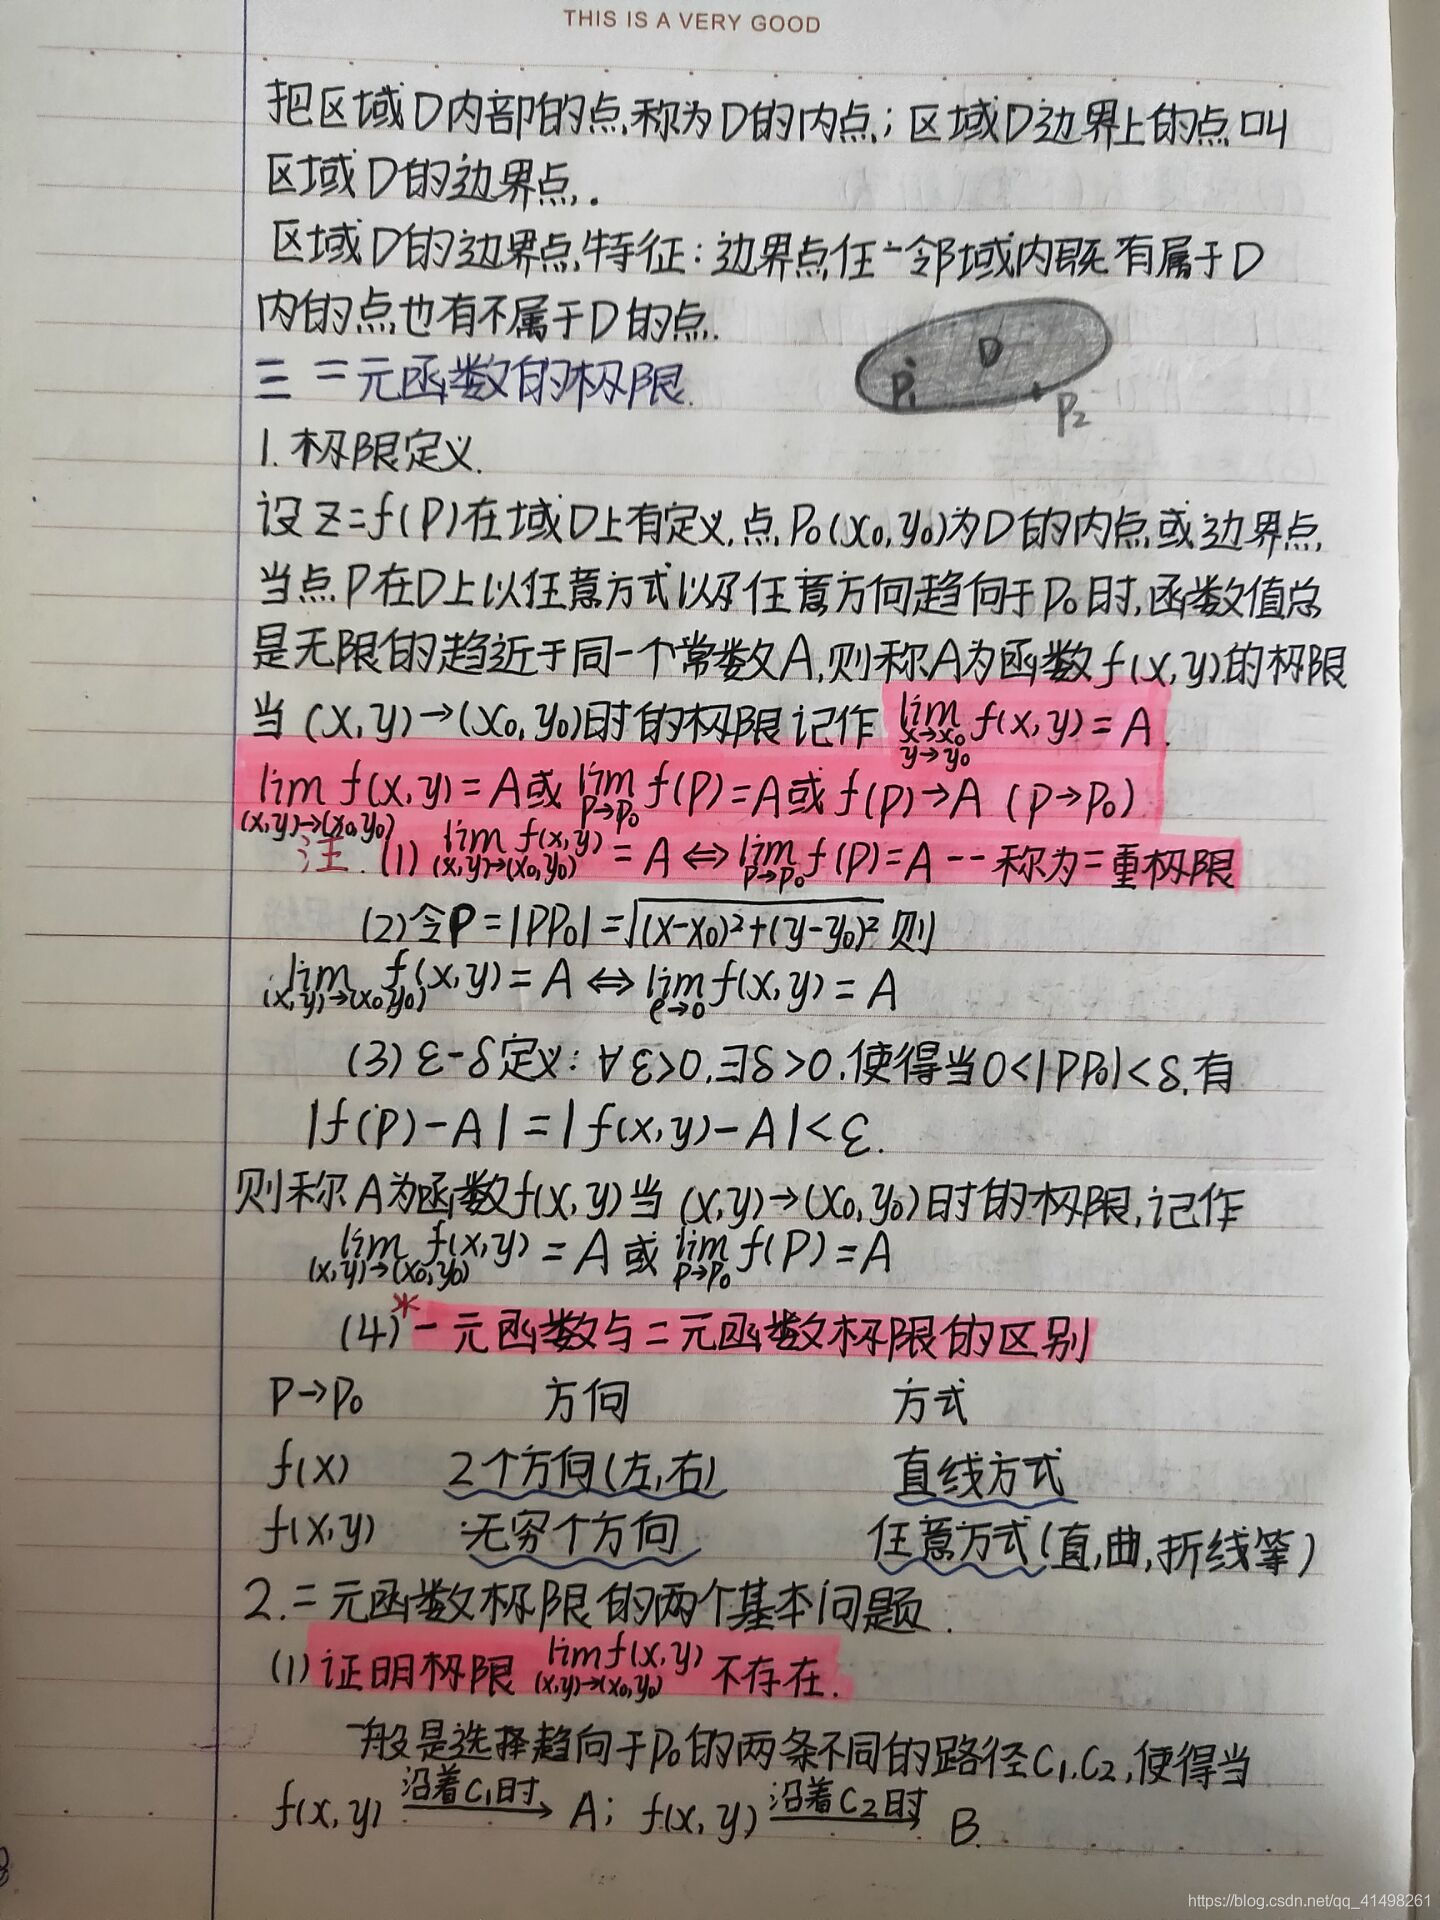 THIS IS A VERY GOOD
把区域D内部的点,称为D的内点;区域D边界上的点叫
区域D的边界点.
区域D的边界点特征:边界点任一邻域内既有属于D
内的点也有不属于D的点.
D
P₁
P₂
三 二元函数的极限.
1.极限定义.
设z=f(P)在域D上有定义,点P₀(x₀,y₀)为D的内点或边界点,
当点P在D上以任意方式以及任意方向趋向于P₀时,函数值总
是无限的趋近于同一个常数A,则称A为函数f(x,y)的极限
当(x,y)→(x₀,y₀)时的极限记作 lim f(x,y)=A.
x→x₀
y→y₀
lim f(x,y)=A或 lim f(P)=A或f(p)→A (p→p₀)
(x,y)→(x₀,y₀) P→P₀
注.(1) lim f(x,y) =A⇔ lim f(P)=A--称为二重极限
(x,y)→(x₀,y₀) P→P₀
(2)令ρ=|PP₀|=√(x-x₀)²+(y-y₀)² 则
lim f(x,y)=A⇔ lim f(x,y)=A
(x,y)→(x₀,y₀) ρ→0
(3)ε-δ定义:∀ε>0,∃δ>0.使得当0<|PP₀|<δ,有
|f(P)-A|=|f(x,y)-A|<ε.
则称A为函数f(x,y)当(x,y)→(x₀,y₀)时的极限,记作
lim f(x,y)=A 或 lim f(P)=A
(x,y)→(x₀,y₀) P→P₀
(4)*一元函数与二元函数极限的区别
P→P₀ 方向 方式
f(x) 2个方向(左,右) 直线方式
f(x,y) 无穷个方向 任意方式(直,曲,折线等)
2.二元函数极限的两个基本问题.
(1)证明极限 lim f(x,y) 不存在.
(x,y)→(x₀,y₀)
一般是选择趋向于P₀的两条不同的路径C₁.C₂,使得当
沿着C₁时 沿着C₂时
f(x,y) → A; f(x,y) → B.
https://blog.csdn.net/qq_41498261